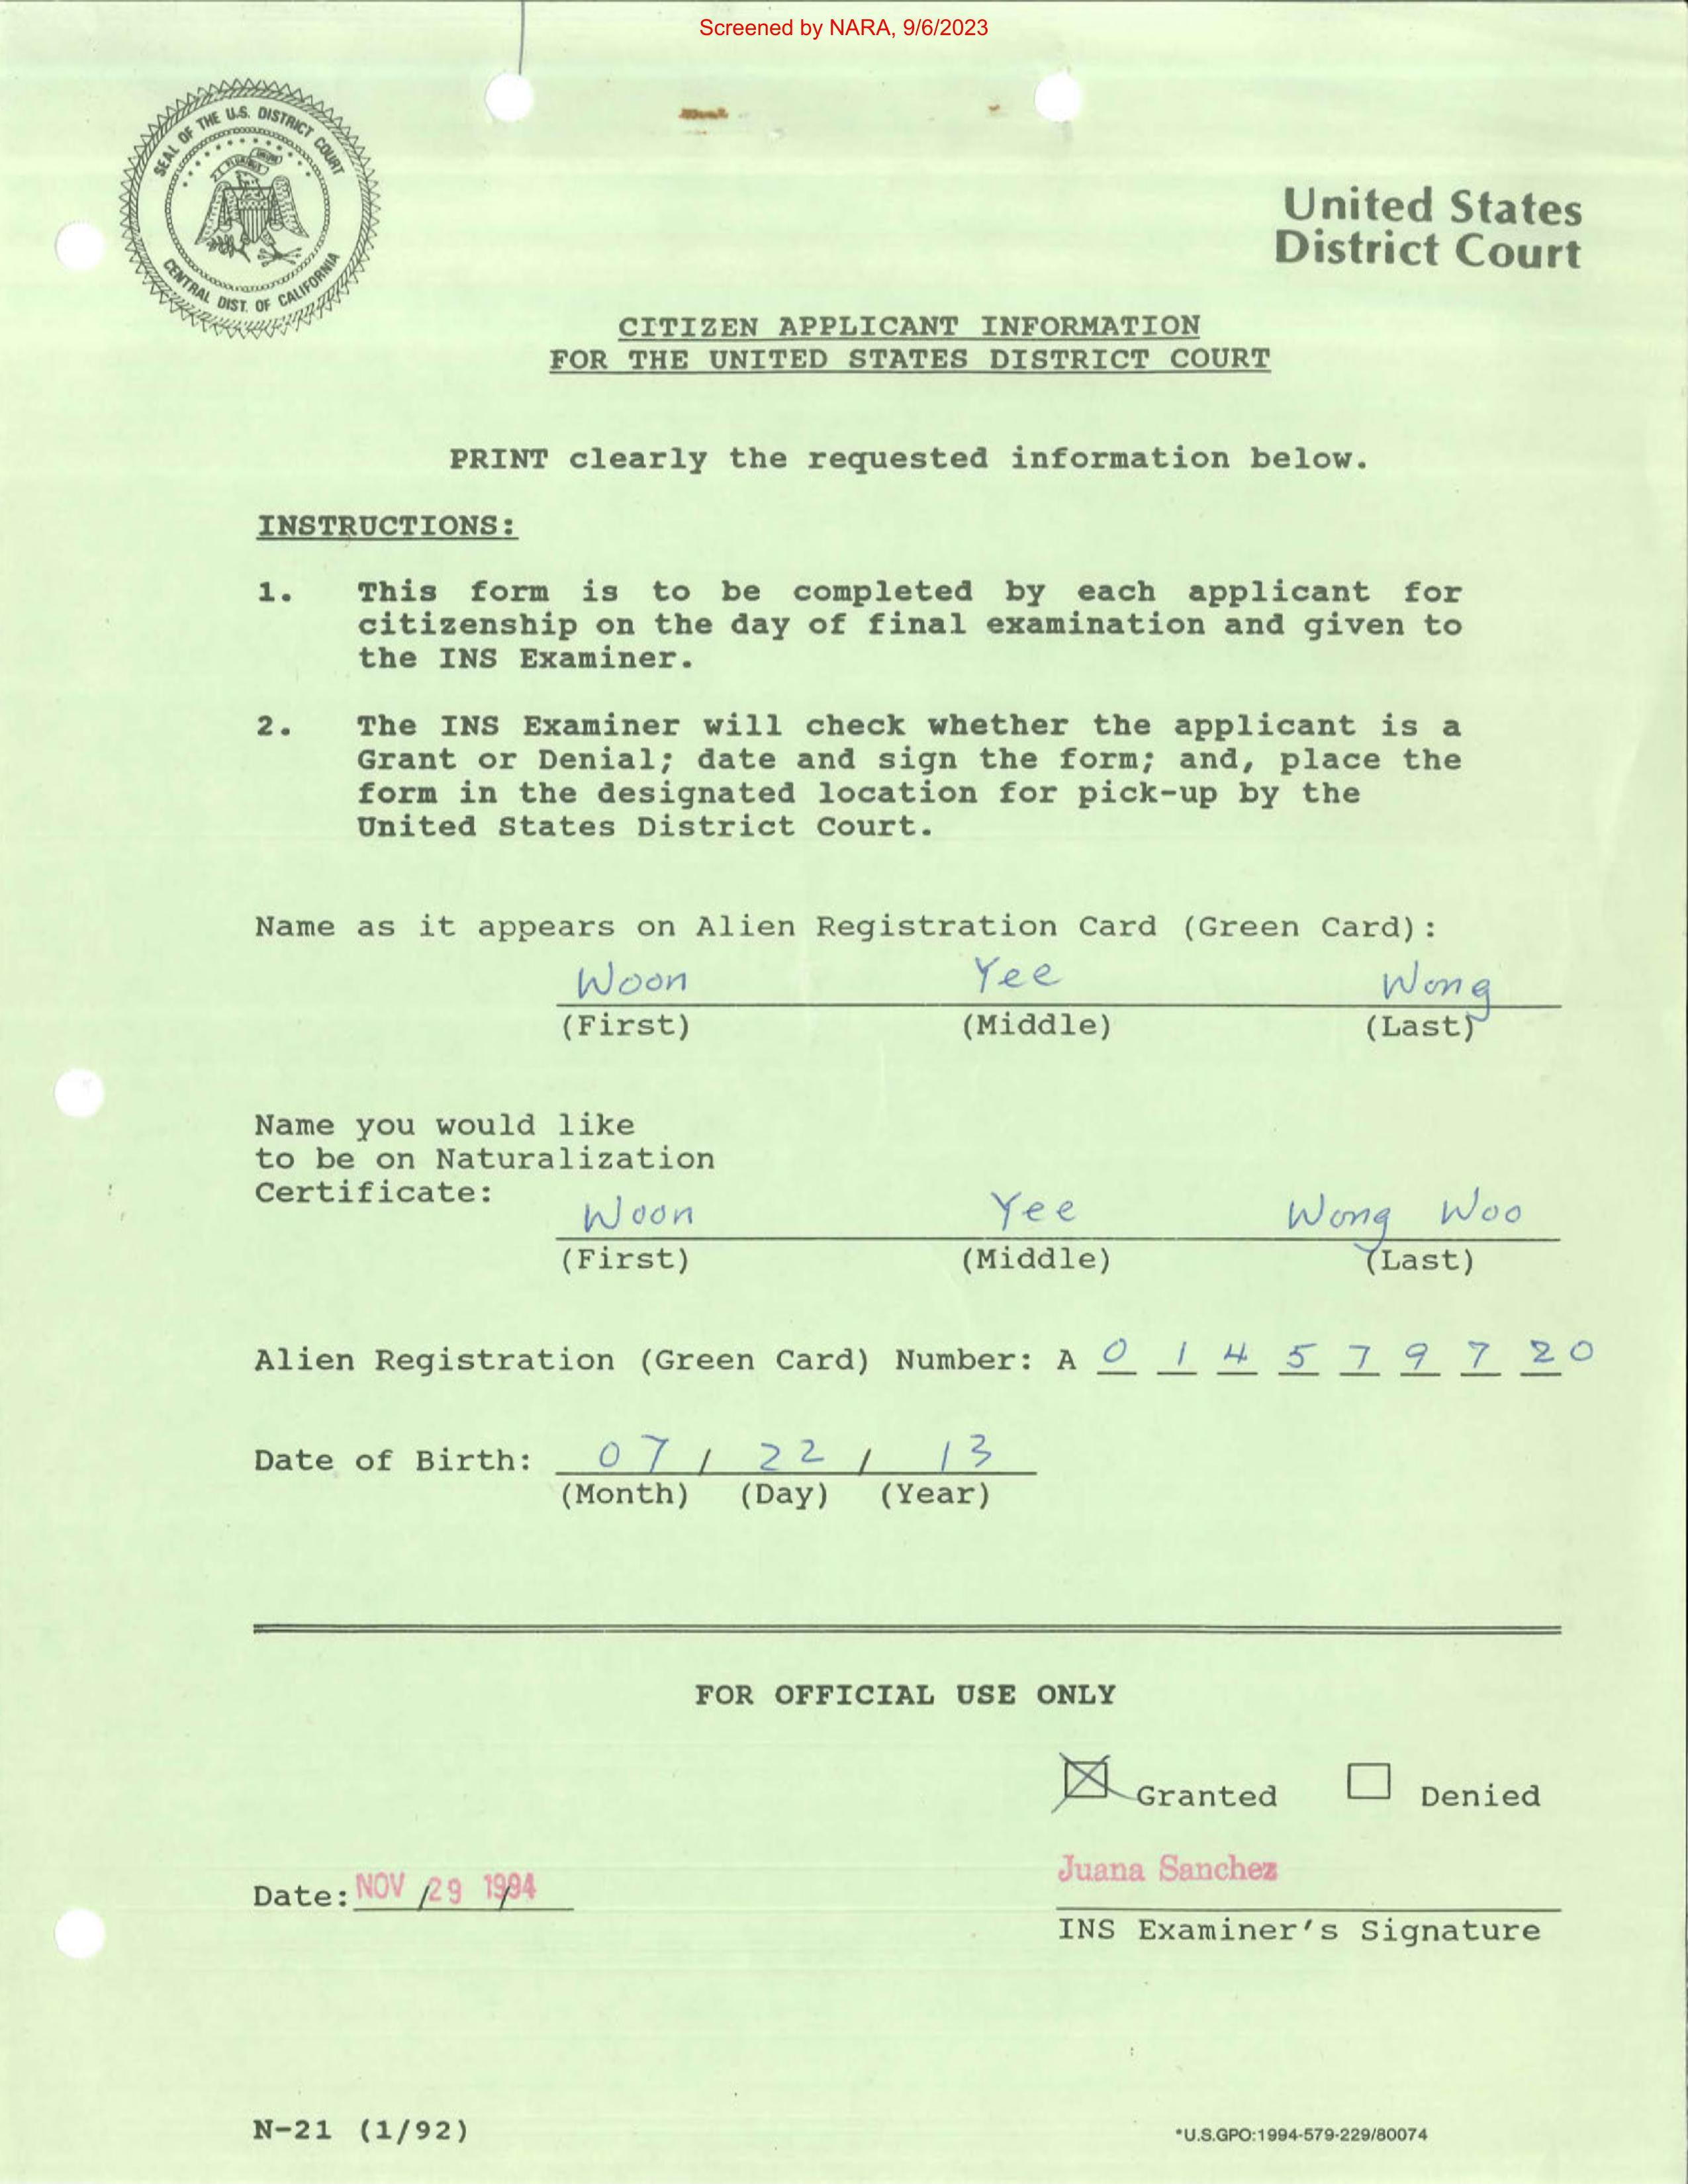 Screened by NARA, 9/6/2023
SEAL OF THE U.S. DISTRICT COURT
CENTRAL DIST. OF CALIFORNIA
United States
District Court
CITIZEN APPLICANT INFORMATION
FOR THE UNITED STATES DISTRICT COURT
PRINT clearly the requested information below.
INSTRUCTIONS:
1. This form is to be completed by each applicant for
citizenship on the day of final examination and given to
the INS Examiner.
2. The INS Examiner will check whether the applicant is a
Grant or Denial; date and sign the form; and, place the
form in the designated location for pick-up by the
United States District Court.
Name as it appears on Alien Registration Card (Green Card):
Woon Yee Wong
(First) (Middle) (Last)
Name you would like
to be on Naturalization
Certificate:
Woon Yee Wong Woo
(First) (Middle) (Last)
Alien Registration (Green Card) Number: A 0 1 4 5 7 9 7 2 0
Date of Birth: 07 / 22 / 13
(Month) (Day) (Year)
FOR OFFICIAL USE ONLY
Granted Denied
Juana Sanchez
Date: NOV / 29 / 1994
INS Examiner's Signature
N-21 (1/92)
*U.S.GPO:1994-579-229/80074